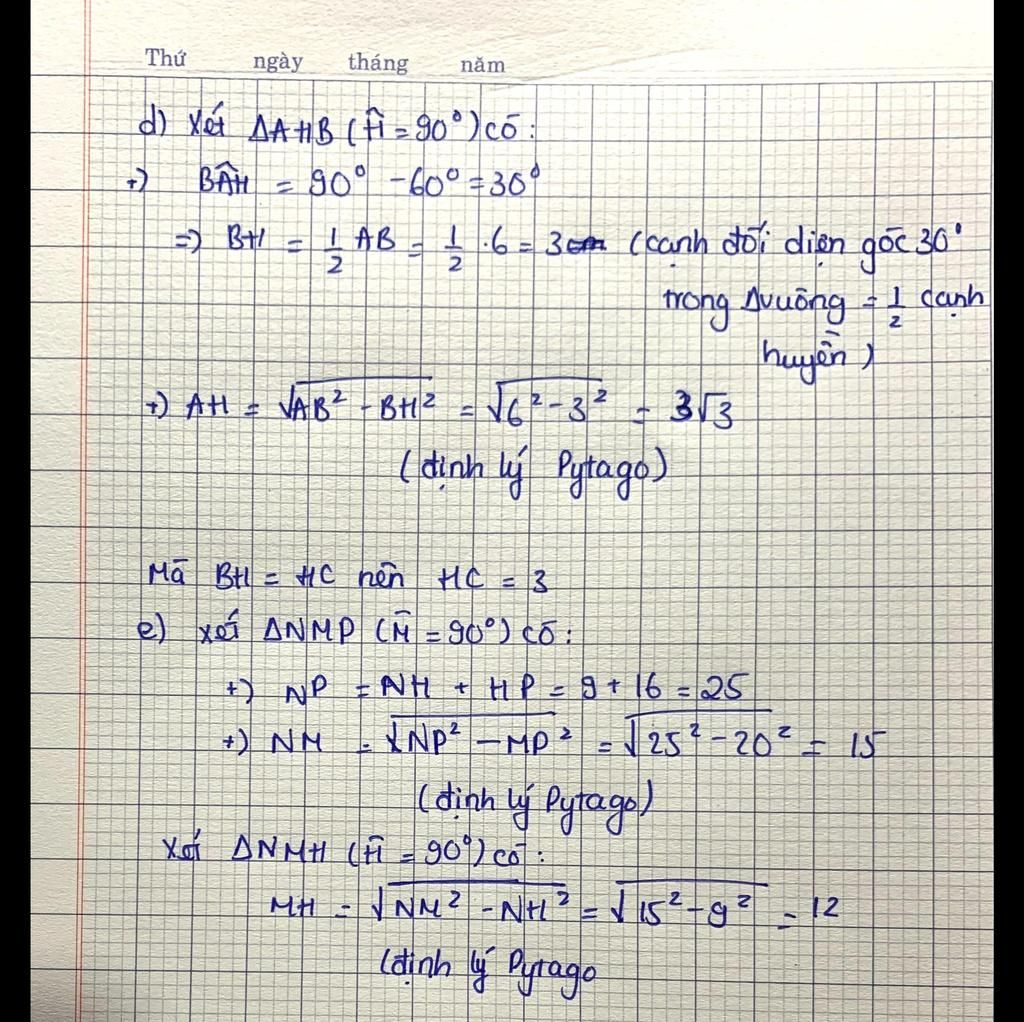 Thứ ngày tháng năm
d) Xét ΔAHB (Ĥ = 90°) có:
+) BÂH = 90° - 60° = 30°
=> BH = 1/2 AB = 1/2 . 6 = 3 (cạnh đối diện góc 30°
trong Δvuông = 1/2 cạnh
huyền)
+) AH = √(AB² - BH²) = √(6² - 3²) = 3√3
(định lý Pytago)
Mà BH = HC nên HC = 3
e) xét ΔNMP (M̂ = 90°) có:
+) NP = NH + HP = 9 + 16 = 25
+) NM = √(NP² - MP²) = √(25² - 20²) = 15
(định lý Pytago)
Xét ΔNMH (Ĥ = 90°) có:
MH = √(NM² - NH²) = √(15² - 9²) = 12
(định lý Pytago